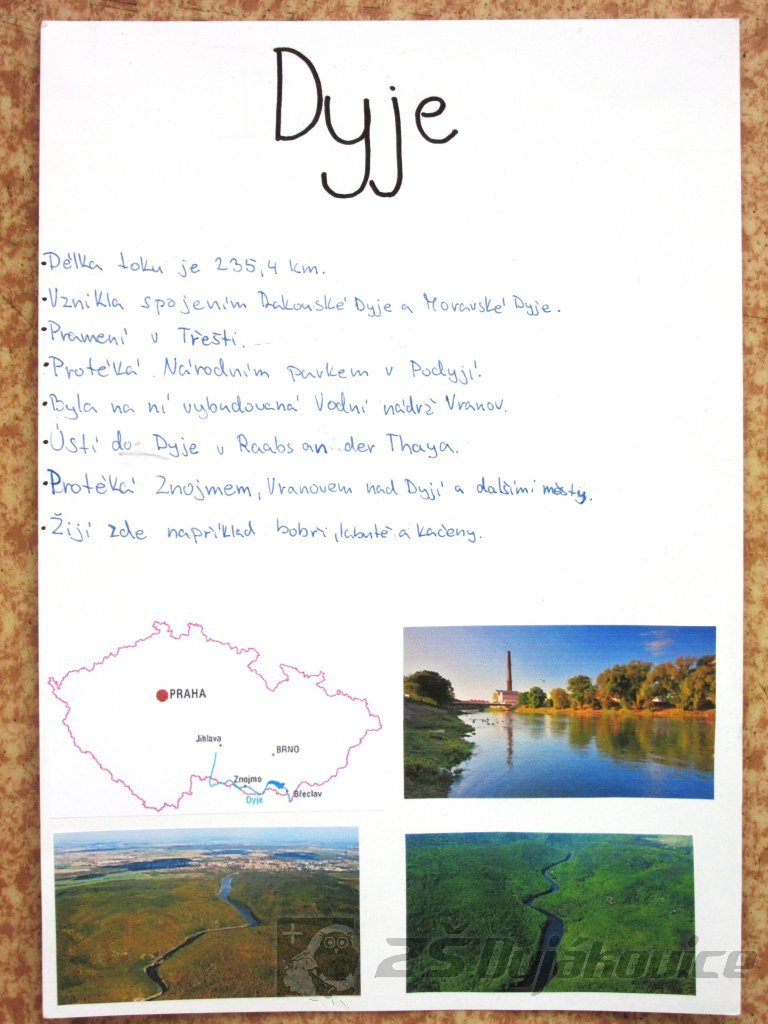 Dyje
•Délka toku je 235,4 km.
•Vznikla spojením Rakouské Dyje a Moravské Dyje.
•Pramení v Třešti.
•Protéká Národním parkem v Podyjí.
•Byla na ní vybudovaná Vodní nádrž Vranov.
•Ústí do Dyje v Raabs an der Thaya.
•Protéká Znojmem, Vranovem nad Dyjí a dalšími městy.
•Žijí zde například bobři, labutě a kačeny.
PRAHA
Jihlava
BRNO
Znojmo
Břeclav
Dyje
ZŠ Dyjákovice